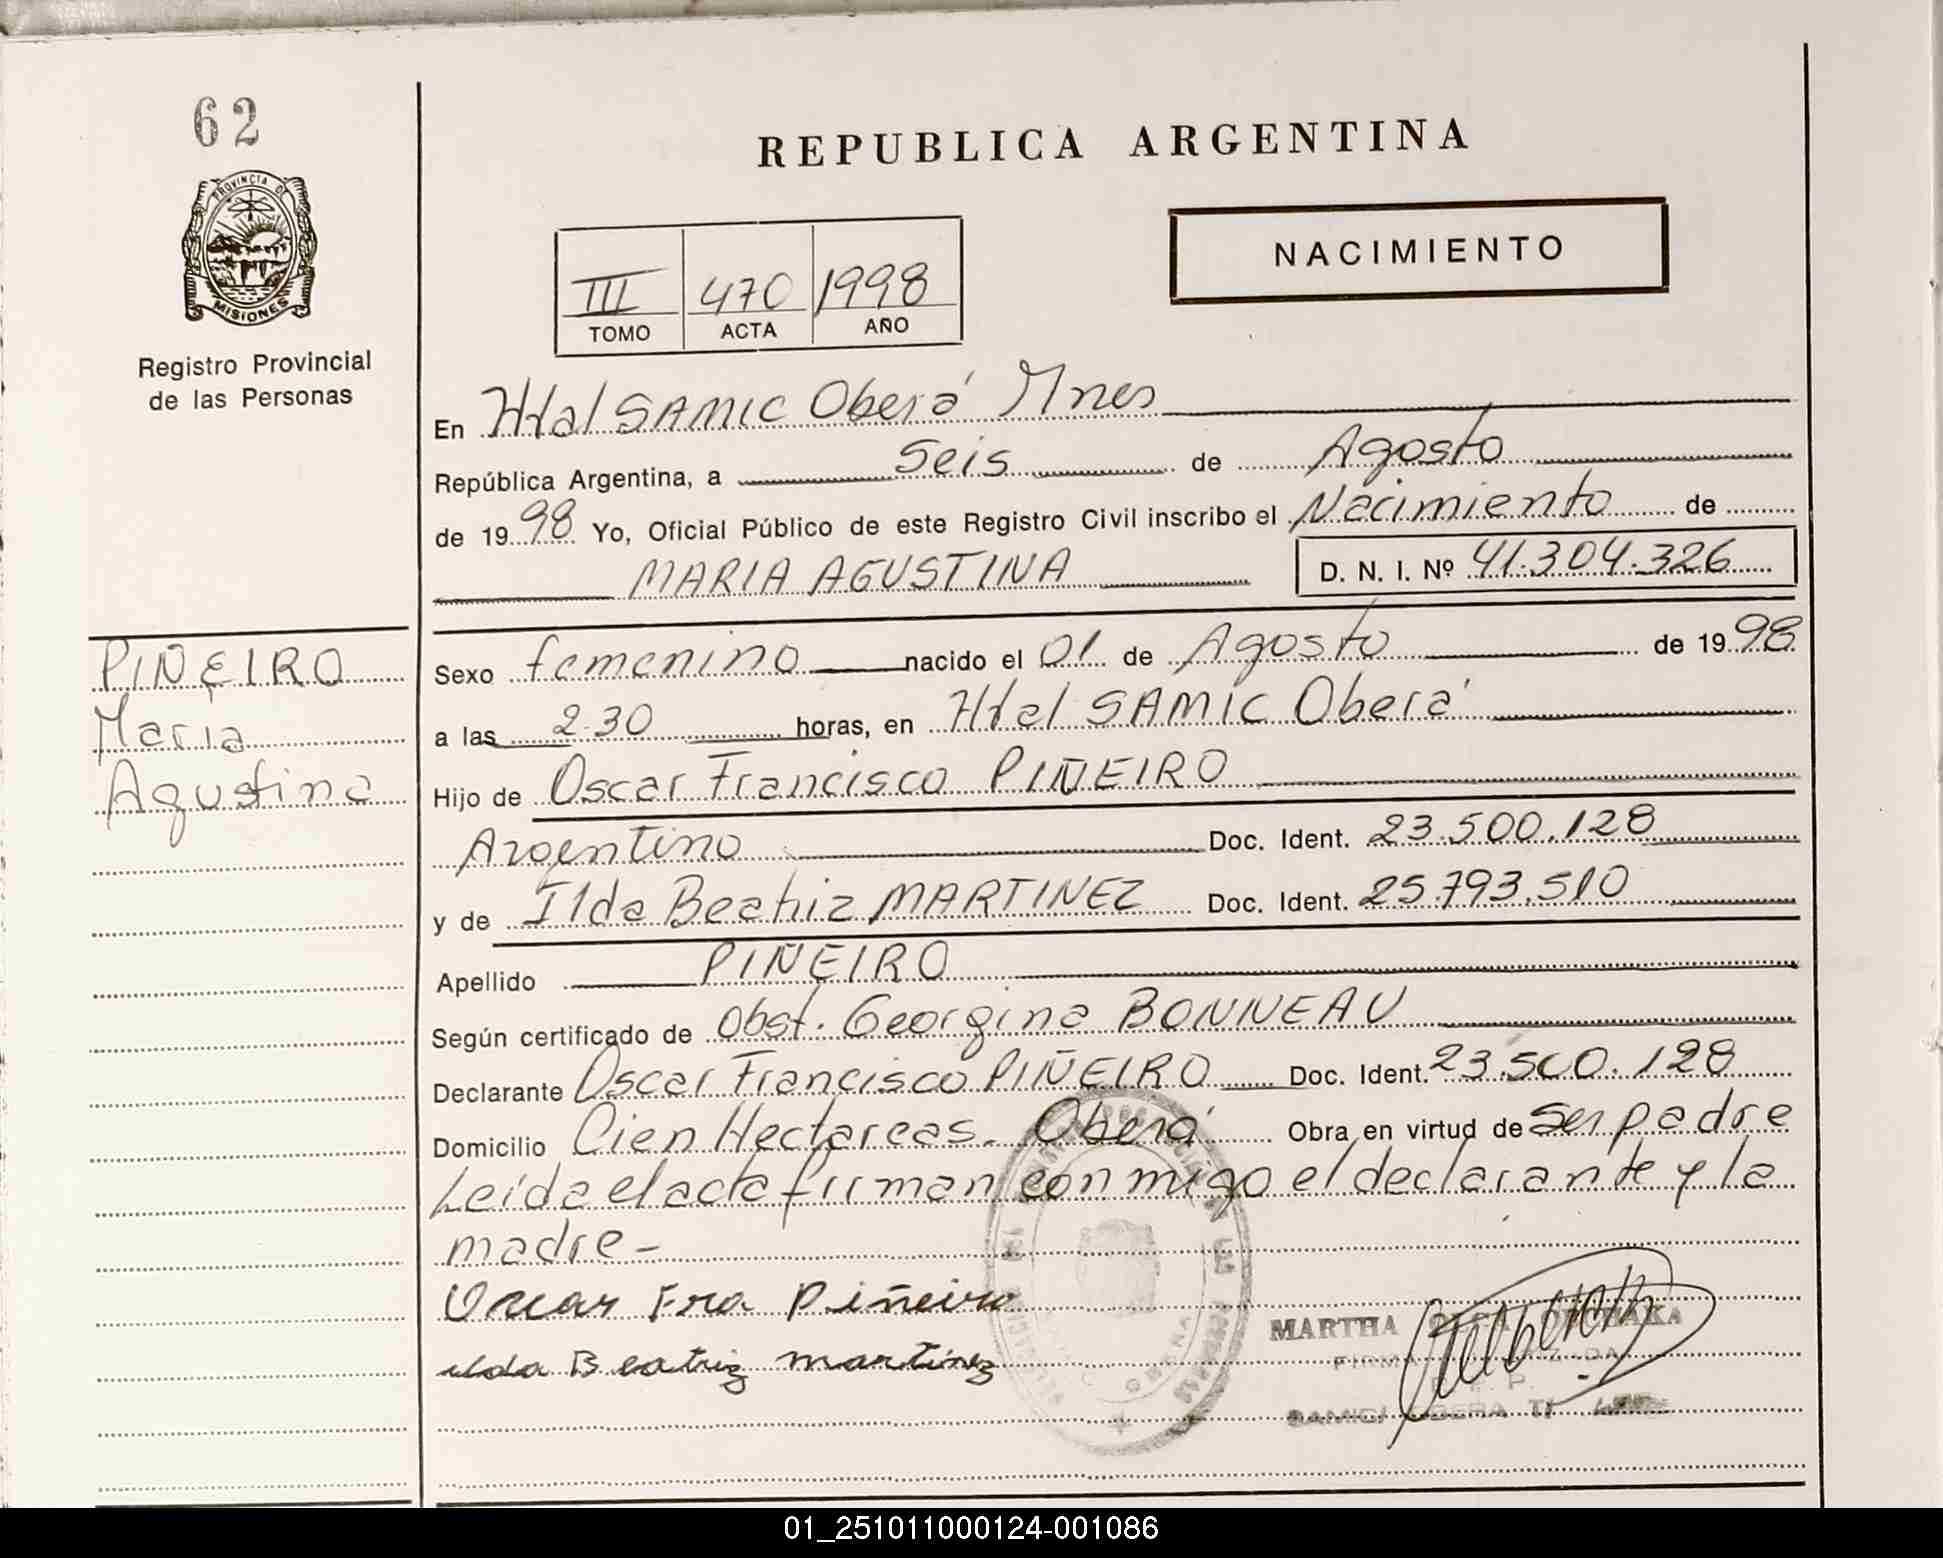 62
PROVINCIA DE
MISIONES
Registro Provincial
de las Personas
REPUBLICA ARGENTINA
NACIMIENTO
III 470 1998
TOMO ACTA AÑO
En Htal SAMIC Oberá Mnes
República Argentina, a Seis de Agosto
de 1998 Yo, Oficial Público de este Registro Civil inscribo el Nacimiento de
MARIA AGUSTINA D. N. I. Nº 41.304.326
PIÑEIRO
Maria
Agustina
Sexo femenino nacido el 01 de Agosto de 1998
a las 2.30 horas, en Htal SAMIC Oberá
Hijo de Oscar Francisco PIÑEIRO
Argentino Doc. Ident. 23.500.128
y de Ilda Beatriz MARTINEZ Doc. Ident. 25.793.510
Apellido PIÑEIRO
Según certificado de Obst. Georgina BONNEAU
Declarante Oscar Francisco PIÑEIRO Doc. Ident. 23.500.128
Domicilio Cien Hectareas. Oberá Obra en virtud de ser padre
Leida el acta firman conmigo el declarante y la
madre -
Oscar Fra Piñeiro
ilda Beatriz martinez
MARTHA
FIRMA
SAMIC OBERA
01_251011000124-001086